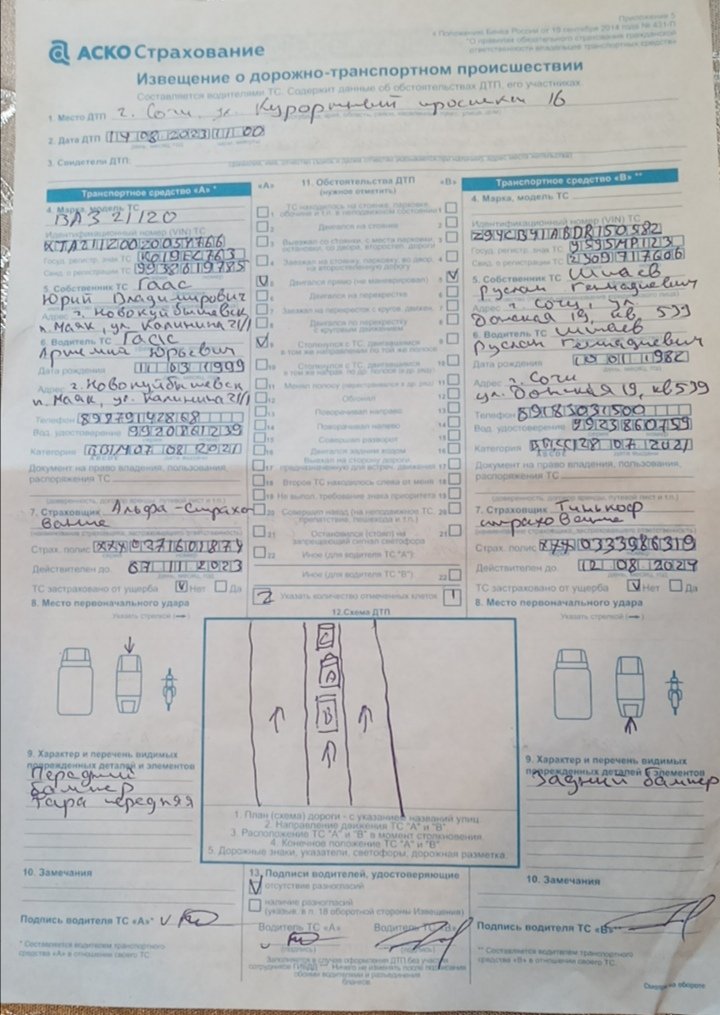 Приложение 5
к Положению Банка России от 19 сентября 2014 года № 431-П
"О правилах обязательного страхования гражданской
ответственности владельцев транспортных средств"
АСКО Страхование
Извещение о дорожно-транспортном происшествии
Составляется водителями ТС. Содержит данные об обстоятельствах ДТП, его участниках.
1. Место ДТП г. Сочи, ул. Курортный проспект 16
2. Дата ДТП 14 08 2023 11 00
3. Свидетели ДТП:
Транспортное средство «А» *
4. Марка, модель ТС
ВАЗ 21120
Идентификационный номер (VIN) ТС
Госуд. регистр. знак ТС
Свид. о регистрации ТС 9938619785
5. Собственник ТС Гаас
Юрий Владимирович
Адрес г. Новокуйбышевск
п. Маяк, ул. Калинина
6. Водитель ТС Гаас
Артемий Юрьевич
Дата рождения 11 03 1999
Адрес г. Новокуйбышевск
п. Маяк, ул. Калинина
Телефон 89279142868
Вод. удостоверение 9920861239
Категория
Документ на право владения, пользования,
распоряжения ТС
(доверенность, договор аренды, путевой лист и т.п.)
7. Страховщик Альфа-Страхо
вание
(наименование страховщика, застраховавшего ответственность)
Страх. полис ХХХ
Действителен до
день, месяц, год
ТС застраховано от ущерба V Нет Да
8. Место первоначального удара
Указать стрелкой (→)
9. Характер и перечень видимых
поврежденных деталей и элементов
Передний
бампер
фара передняя
10. Замечания
Подпись водителя ТС «А»*
* Составляется водителем транспортного
средства «А» в отношении своего ТС.
«А» 11. Обстоятельства ДТП «В»
(нужное отметить)
1 ТС находилось на стоянке, парковке,
обочине и т.п. в неподвижном состоянии 1
2 Двигался на стоянке 2
3 Выезжал со стоянки, с места парковки,
остановки, со двора, второстеп. дороги 3
4 Заезжал на стоянку, парковку, во двор,
на второстепенную дорогу 4
V 5 Двигался прямо (не маневрировал) 5 V
6 Двигался на перекрестке 6
7 Заезжал на перекресток с кругов. движен. 7
8 Двигался по перекрестку
с круговым движением 8
V 9 Столкнулся с ТС, двигавшимся
в том же направлении по той же полосе 9
10 Столкнулся с ТС, двигавшимся
в том же направл. по др. полосе (в др. ряду) 10
11 Менял полосу (перестраивался в др. ряд) 11
12 Обгонял 12
13 Поворачивал направо 13
14 Поворачивал налево 14
15 Совершал разворот 15
16 Двигался задним ходом 16
17 Выехал на сторону дороги,
предназначенную для встреч. движения 17
18 Второе ТС находилось слева от меня 18
19 Не выпол. требование знака приоритета 19
20 Совершил наезд (на неподвижное ТС, 20
препятствие, пешехода и т.п.)
21 Остановился (стоял) на
запрещающий сигнал светофора 21
22 Иное (для водителя ТС "А"):
Иное (для водителя ТС "В"): 22
2 Указать количество отмеченных клеток 1
12.Схема ДТП
С
А
В
1. План (схема) дороги - с указанием названий улиц.
2. Направление движения ТС "А" и "В"
3. Расположение ТС "А" и "В" в момент столкновения.
4. Конечное положение ТС "А" и "В"
5. Дорожные знаки, указатели, светофоры, дорожная разметка.
13. Подписи водителей, удостоверяющие
V отсутствие разногласий
наличие разногласий
(указыв. в п. 18 оборотной стороны Извещения)
Водитель ТС «А» Водитель ТС «В»
(подпись) (подпись)
Заполняется в случае оформления ДТП без участия
сотрудников ГИБДД ***. Ничего не изменять после подписания
обоими водителями и разъединения
бланков
Транспортное средство «В» **
4. Марка, модель ТС
Идентификационный номер (VIN) ТС
Госуд. регистр. знак ТС
Свид. о регистрации ТС
5. Собственник ТС
Руслан Геннадиевич
Адрес г. Сочи, ул.
Донская 19, кв. 539
6. Водитель ТС
Руслан Геннадиевич
Дата рождения
Адрес г. Сочи
ул. Донская 19, кв 539
Телефон 89183031500
Вод. удостоверение 9923860759
Категория
Документ на право владения, пользования,
распоряжения ТС
(доверенность, договор аренды, путевой лист и т.п.)
7. Страховщик Тинькоф
страхование
(наименование страховщика, застраховавшего ответственность)
Страх. полис ХХХ 0333986319
Действителен до 12 08 2024
день, месяц, год
ТС застраховано от ущерба V Нет Да
8. Место первоначального удара
Указать стрелкой (→)
9. Характер и перечень видимых
поврежденных деталей и элементов
Задний бампер
10. Замечания
Подпись водителя ТС «В»
** Составляется водителем транспортного
средства «В» в отношении своего ТС.
Смотри на обороте